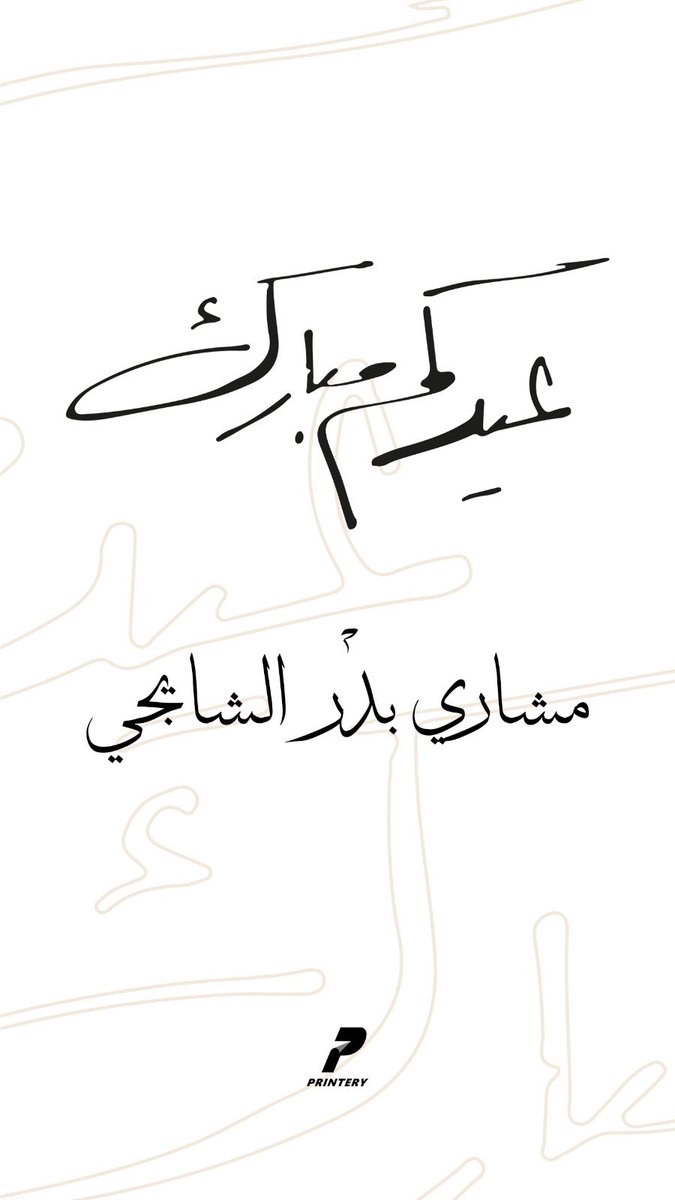 عيدكم مبارك
مشاري بدْر الشايجي
PRINTERY